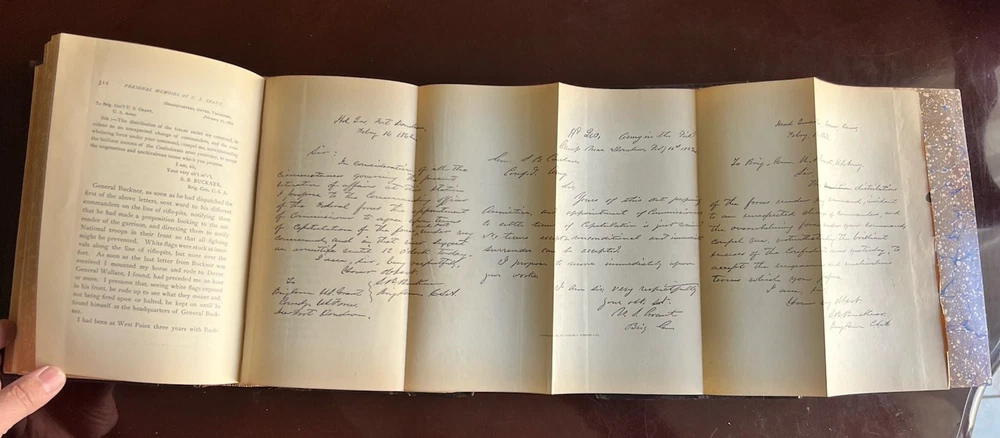 312 PERSONAL MEMOIRS OF U. S. GRANT.
HEADQUARTERS, DOVER, TENNESSEE,
February 16, 1862.
To Brig. Gen'l U. S. GRANT,
U. S. Army.
SIR:—The distribution of the forces under my command, in-
cident to an unexpected change of commanders, and the over-
whelming force under your command, compel me, notwithstanding
the brilliant success of the Confederate arms yesterday, to accept
the ungenerous and unchivalrous terms which you propose.
I am, sir,
Your very ob't se'v't,
S. B. BUCKNER,
Brig. Gen. C. S. A.
General Buckner, as soon as he had dispatched the
first of the above letters, sent word to his different
commanders on the line of rifle-pits, notifying them
that he had made a proposition looking to the sur-
render of the garrison, and directing them to notify
National troops in their front so that all fighting
might be prevented. White flags were stuck at inter-
vals along the line of rifle-pits, but none over the
fort. As soon as the last letter from Buckner was
received I mounted my horse and rode to Dover.
General Wallace, I found, had preceded me an hour
or more. I presume that, seeing white flags exposed
in his front, he rode up to see what they meant and,
not being fired upon or halted, he kept on until he
found himself at the headquarters of General Buck-
ner.
I had been at West Point three years with Buck-
Hd. Qrs, Fort Donelson,
Feby 16 1862
Sir:
In consideration of all the
circumstances governing the present
situation of affairs at this station,
I propose to the Commanding officer
of the Federal forces the appointment
of Commissioners to agree upon terms
of capitulation of the forces and post under my
command, and in that view suggest
an armistice until 12 o'clock today.
I am, sir, very respectfully,
Your obdt servt
S. B. Buckner
Brig Gen C.S.A.
To
Brig Gen U. S. Grant
Comdg U.S. Forces
Near Fort Donelson.
Hd Qrs, Army in the Field
Camp near Donelson Feby 16th 1862
Gen. S. B. Buckner
Confed. Army
Sir,
Yours of this date proposing
Armistice, and appointment of Commissioners
to settle terms of Capitulation is just received
No terms except unconditional and immediate
surrender can be accepted.
I propose to move immediately upon
your works
I am Sir, very respectfully
your obt. svt.
U. S. Grant
Brig. Gen
Head Quarters
Feby 16
To Brig. Gen.
Sir
The distribution
of the forces under my command, incident
to an unexpected change of commanders, and
the overwhelming force under your command,
compel me, notwithstanding the brilliant
success of the Confederate arms yesterday, to
accept the ungenerous and unchivalrous
terms which you propose.
I am, sir
Your obdt
S B Buckner
Brig Gen C.S.A.